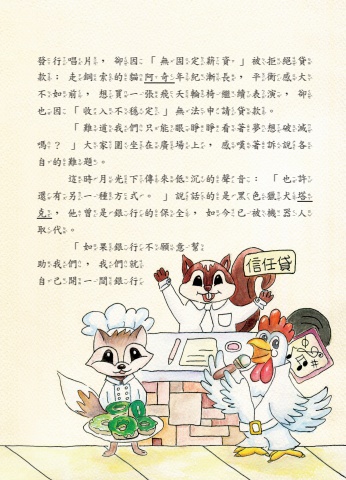 發行唱片，卻因「無固定薪資」被拒絕貸
款；走鋼索的貓阿奇年紀漸長，平衡感大
不如前，想買一張飛天輪椅繼續表演，卻
也因「收入不穩定」無法申請貸款。
「難道我們只能眼睜睜看著夢想破滅
嗎？」大家圍坐在廣場上，感嘆著訴說各
自的難題。
這時月光下傳來低沉的聲音：「也許
還有另一種方式。」說話的是黑色獵犬塔
克，他曾是銀行的保全，如今已被機器人
取代。
「如果銀行不願意幫
助我們，我們就
自己開一間銀行
信任貸